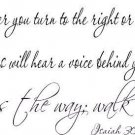 er you turn to the right or
will hear a voice behind
s the way; walk
Isaiah